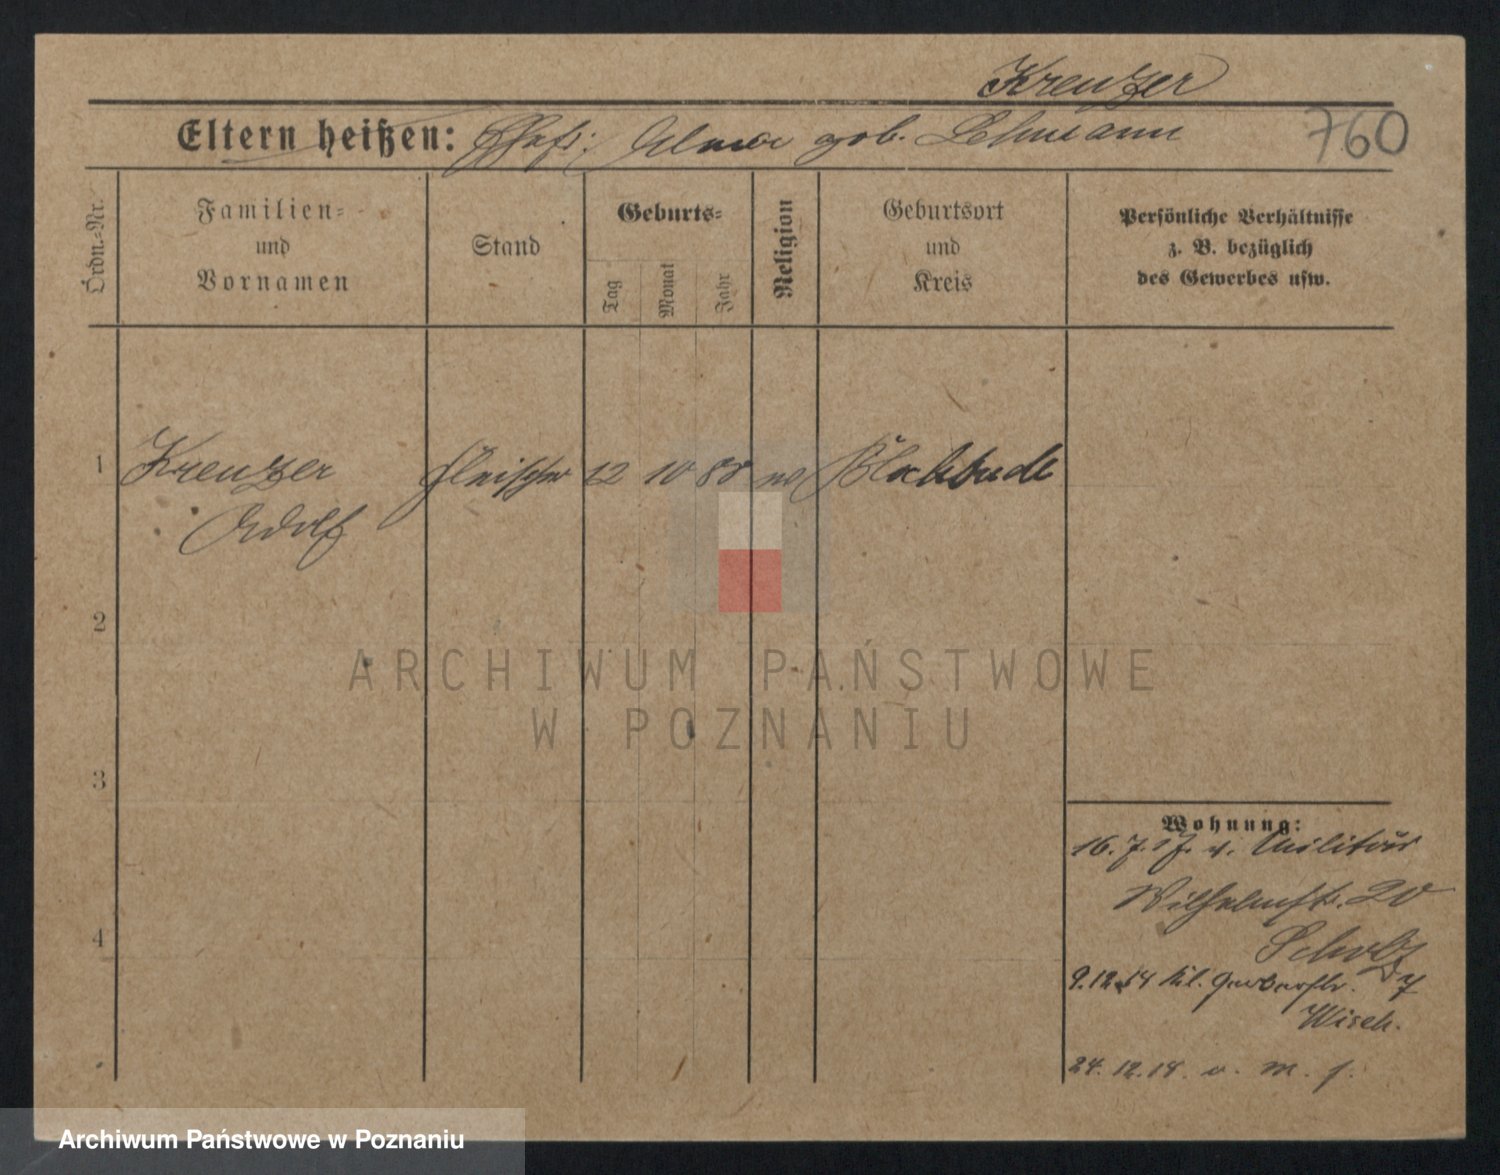 Kreuzer
Eltern heißen: Ehefr: Alma geb. Lehmann
760
Ordn.-Nr.
Familien-
und
Vornamen
Stand
Geburts-
Tag
Monat
Jahr
Religion
Geburtsort
und
Kreis
Persönliche Verhältnisse
z. B. bezüglich
des Gewerbes usw.
1 Kreuzer Fleischer 12 10 88
Adolf
2
3
4
ARCHIWUM PAŃSTWOWE
W POZNANIU
Wohnung:
16. 7. 17. v. Militär
Wilhelmstr. 20
Scholz
9.12.14 Kl. Gerberstr. 7
Wisch.
24. 12. 18. v. m. f.
Archiwum Państwowe w Poznaniu